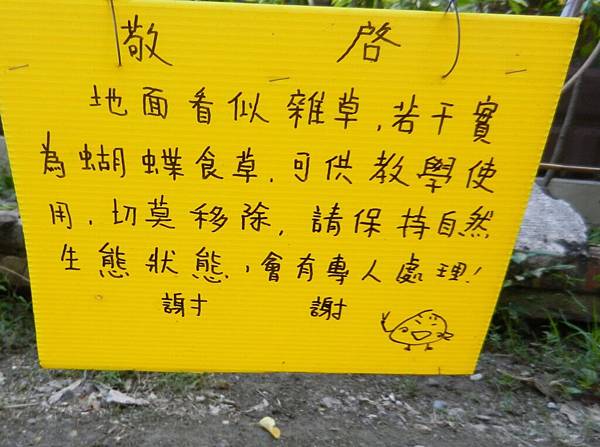 敬 啓
地面看似雜草,若干實
為蝴蝶食草,可供教學使
用,切莫移除,請保持自然
生態狀態,會有專人處理!
謝 謝